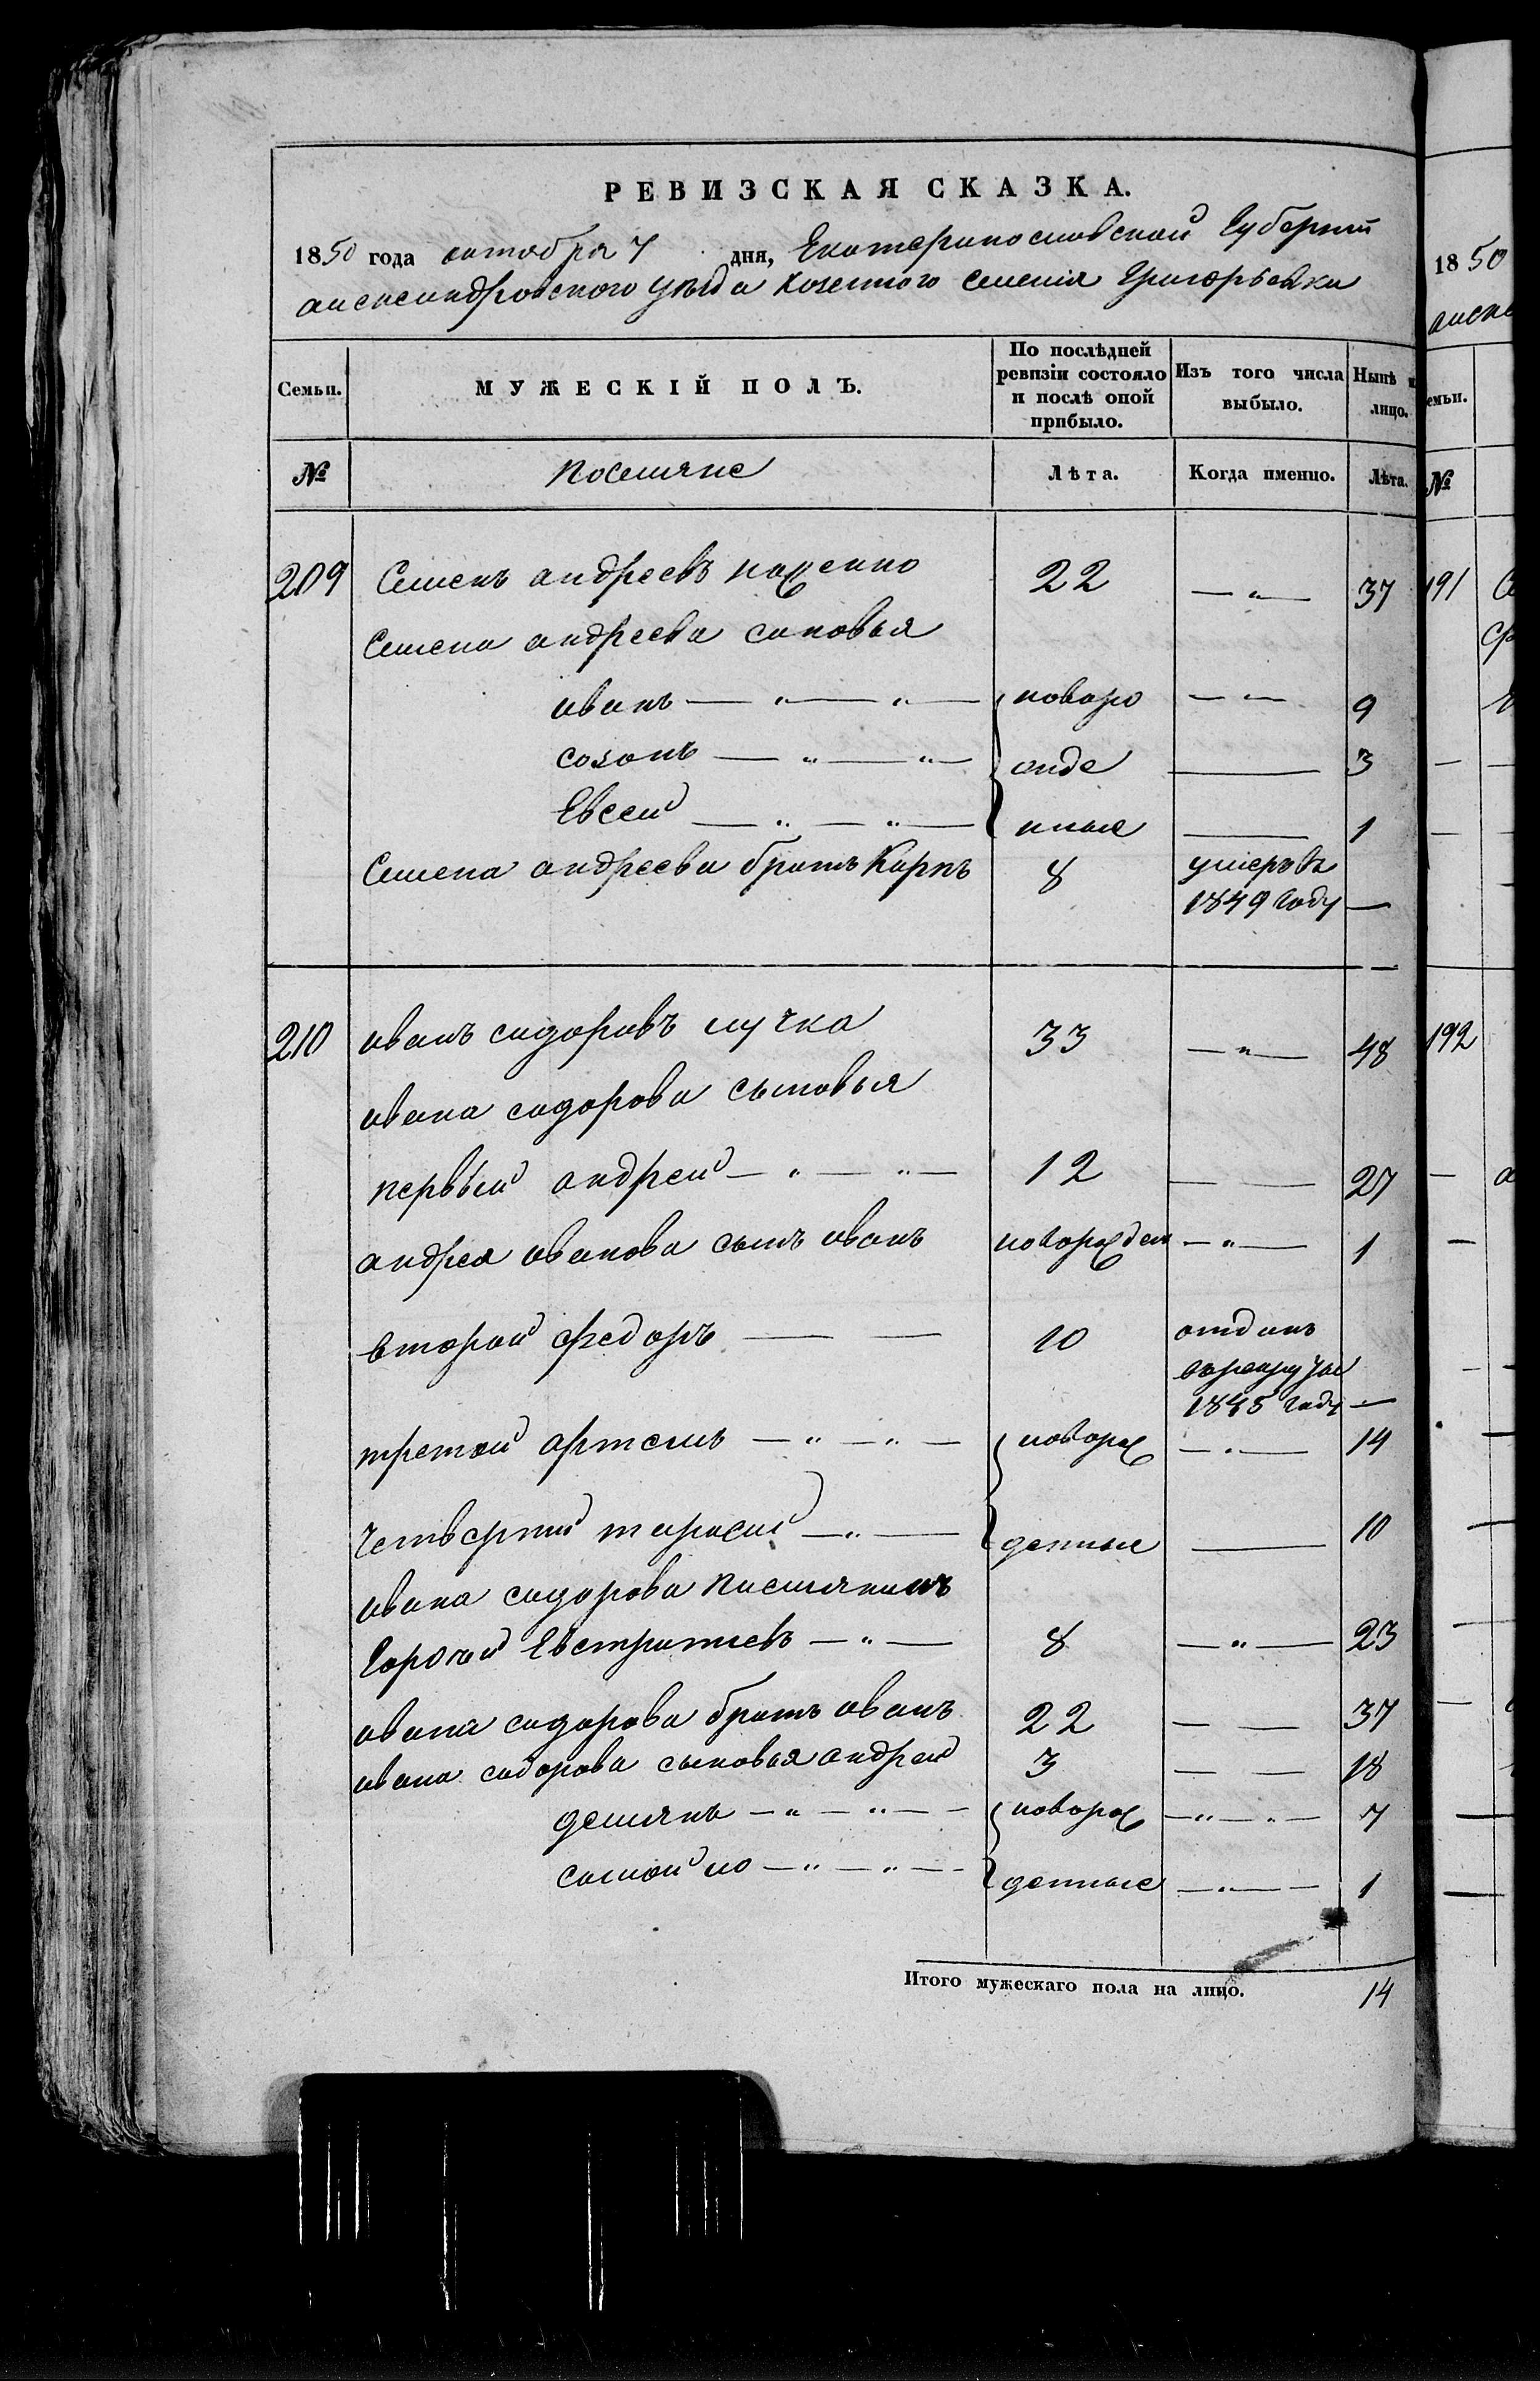 РЕВИЗСКАЯ СКАЗКА.
1850 года октября 7 дня, Екатеринославской Губернии
александровского уезда казенного селения Григорьевки
Семьи. МУЖЕСКІЙ ПОЛЪ. По послѣдней ревизіи состояло и послѣ оной прибыло. Изъ того числа выбыло. Нынѣ лицо.
№ поселяне Лѣта. Когда именно. Лѣта.
209 Семенъ андреевъ 22 — " — 37
Семена андреева сановья
иванъ — " — " — новоро — " — 9
созонъ — " — " — жде — 3
Евсей — " — " — нные — 1
Семена андреева братъ Карпъ 8 умеръ въ
1849 году —
210 иванъ сидоровъ лучка 33 — " — 48
ивана сидорова сыновья
первый андрей — " — " — 12 — — 27
андрея иванова сынъ иванъ новорожден — " — 1
второй федоръ — — 10 отданъ
врекруты
1845 году —
третой артемъ — " — " — новорож — " — 14
Четвертий тарасий — " — денные — 10
ивана сидорова
Евстратиевъ — " — 8 — " — 23
ивана сидорова братъ иванъ 22 — — 37
ивана сидорова сыновья андрей 3 — — 18
демянъ — " — " — новорож — " — " — 7
самойло — " — " — денные — " — 1
Итого мужескаго пола на лицо. 14
1850
алекс
емьи.
№
191
192